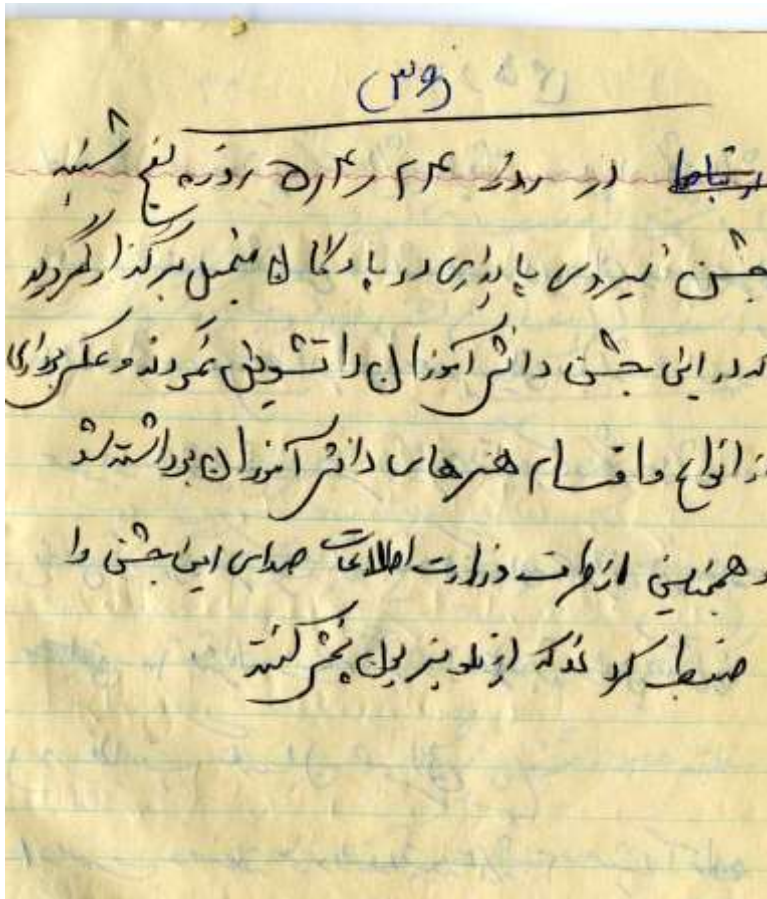 (۳۹)
در روز ۲۴ ر ۴ ر ۵ روز پنج شنبه
جشن نیروی پایداری در پادگان منجیل برگذار گردید
که در این جشن دانش آموزان را تشویق نمودند و عکس برداری
از انواع و اقسام هنرهای دانش آموزان برداشته شد
و همچنین از طرف وزارت اطلاعات صدای این جشن را
ضبط کردند که از تلویزیون پخش کنند